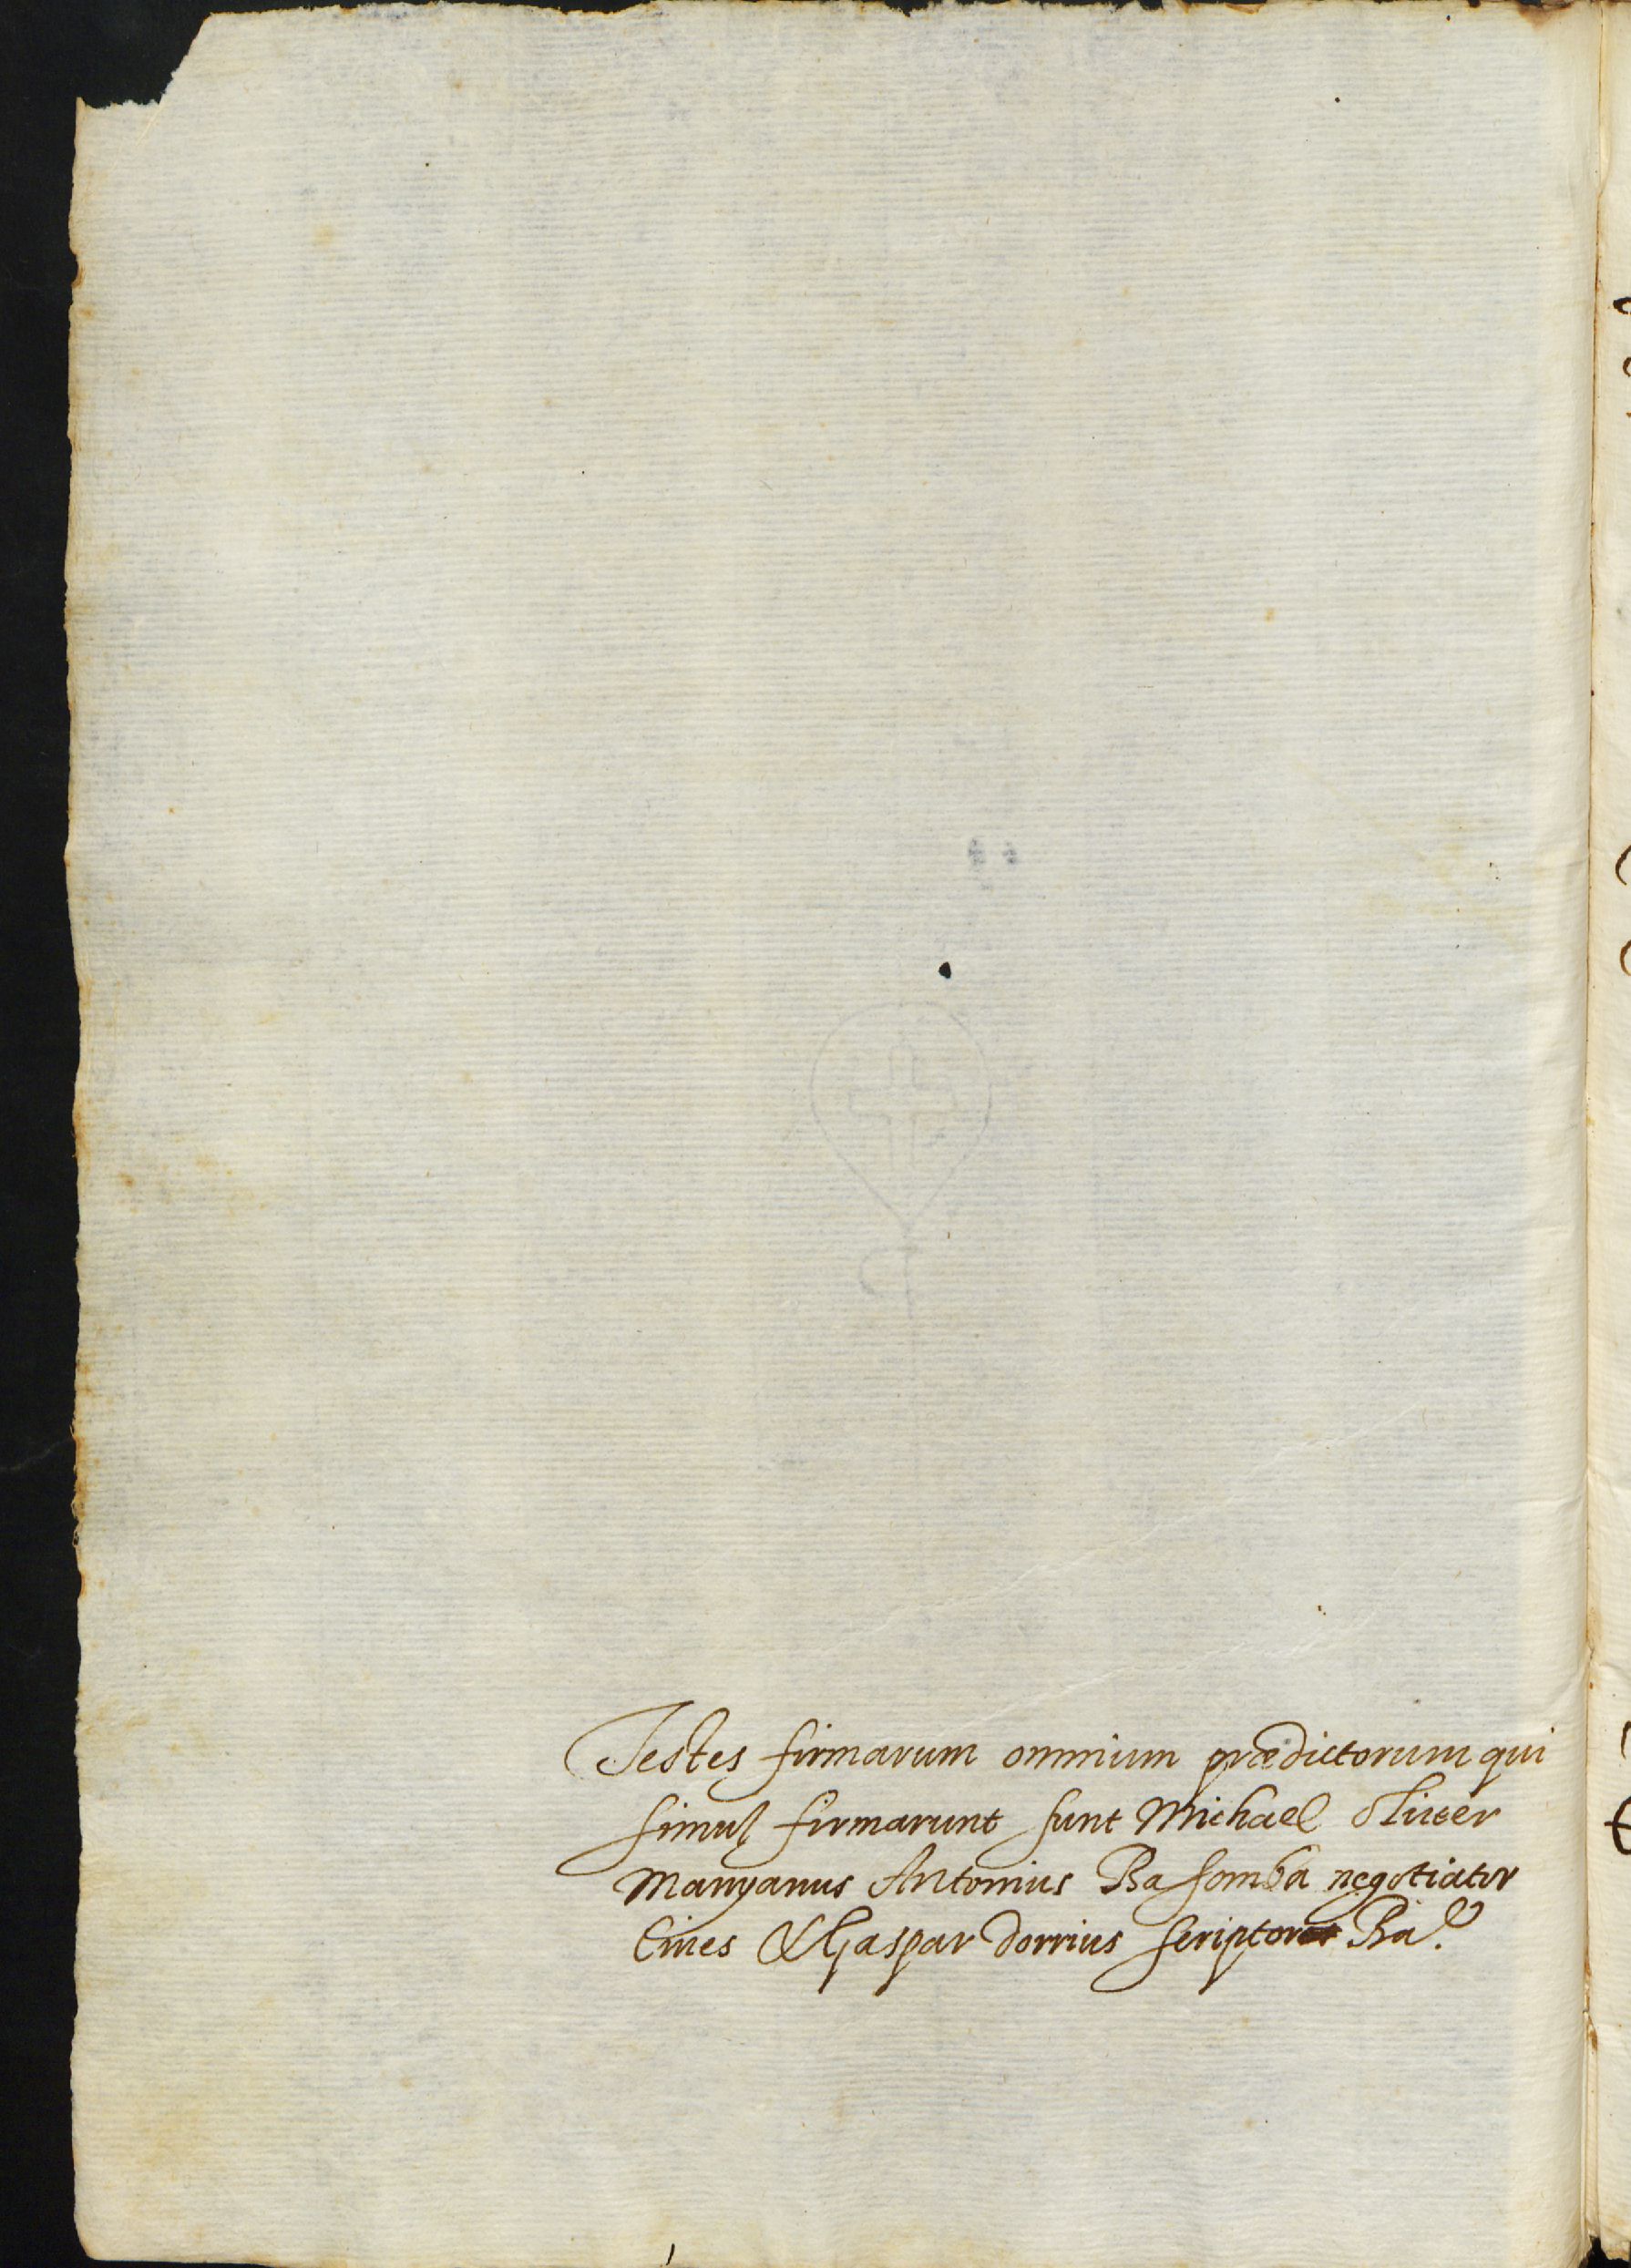 Testes firmarum omnium prædictorum qui
simul firmarunt sunt Michael Oliver
Manyanus Antonius Basomba negotiator
Cives & Gaspar Dorrius scriptor Ba.